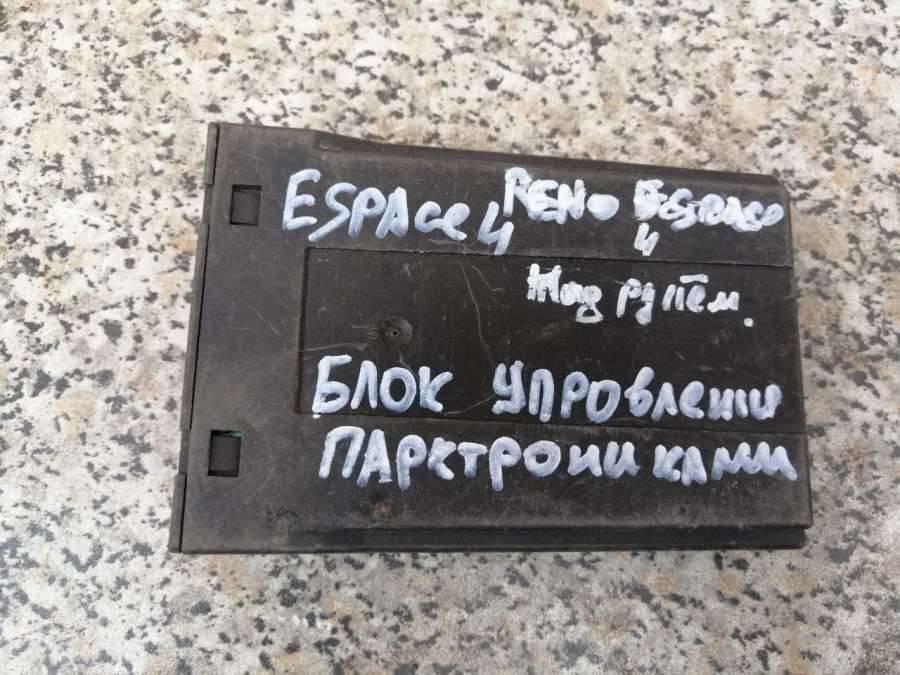 ESPAce 4
RENo Espace
4
под рулём.
БЛОК УПРОвлени
ПАРКТРОНИКАМИ